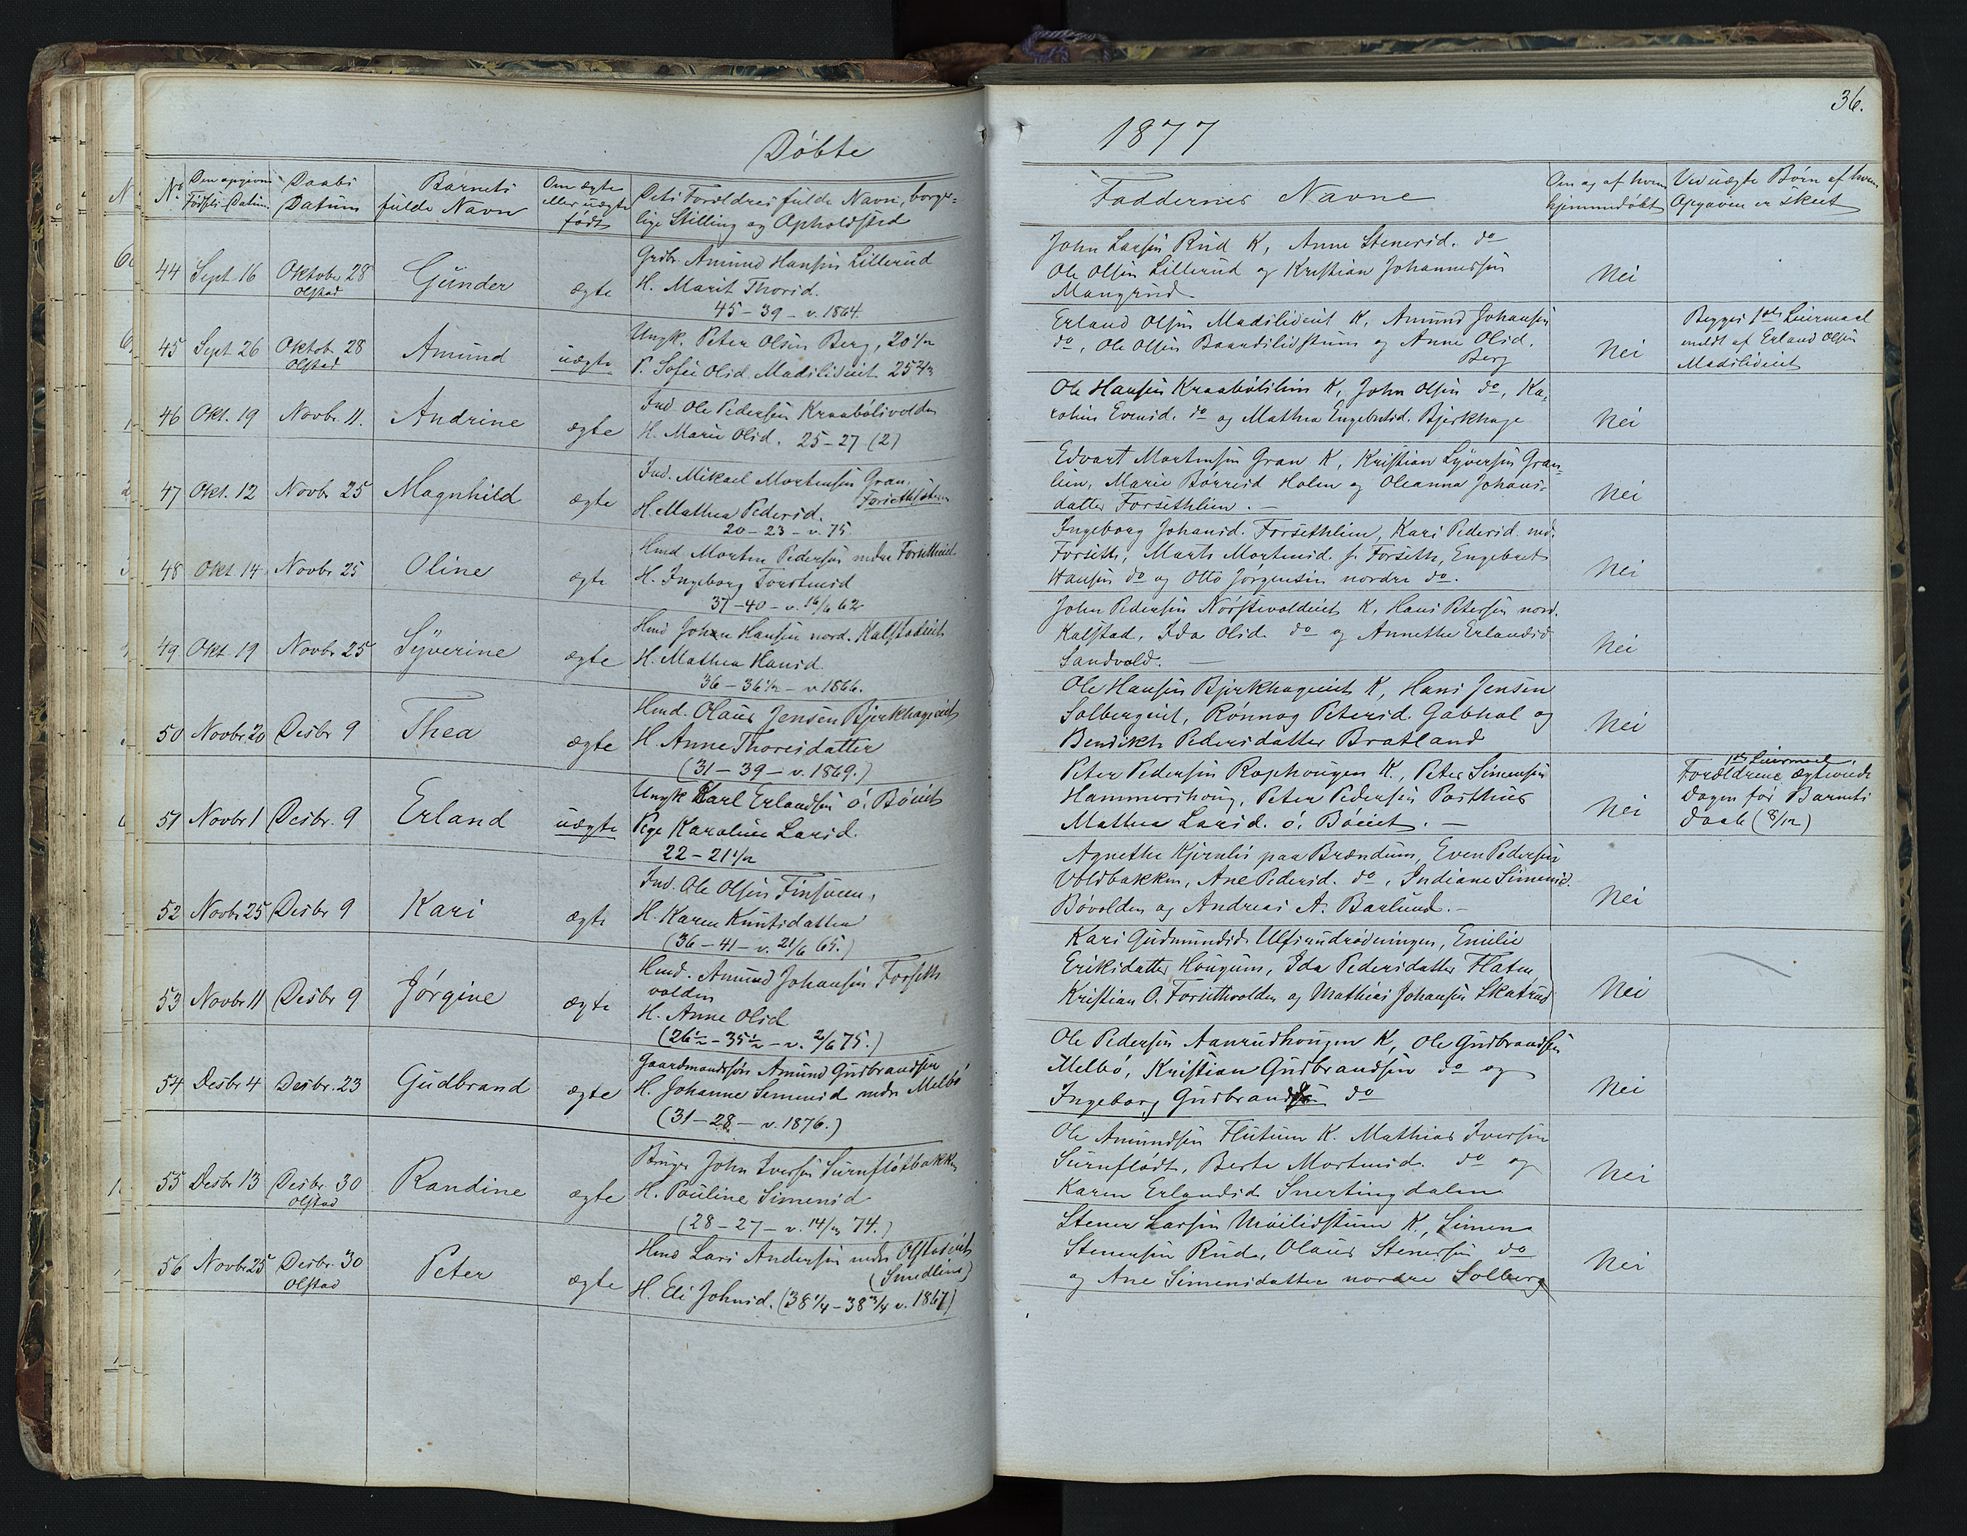 Døbte
No
Den opgivne
Fødsels-Datum
Daabs
Datum
Barnets
fulde Navn
Om ægte
eller uægte
født
Dets Forældres fulde Navn, borger-
lige Stilling og Opholdssted
44 Sept 16 Oktober 28 Gunder ægte
Olstad
Grdbr. Amund Hansen Lillerud
H. Marit Thorsd.
45 - 39 - v. 1864.
45 Sept 26 Oktob. 28 Amund uægte
Olstad
Ungk. Peter Olsen Berg, 20 1/2
P. Sofie Olsd. Madslideiet
46 Okt. 19 Novbr. 11. Andrine ægte
Ind. Ole Pedersen Kraabølsvolden
H. Marie Olsd. 25-27 (2)
47 Okt. 12 Novbr 25 Magnhild ægte
Ind. Mikael Mortensen Gran,
H. Mathea Pedersd.
20 - 23 - v. 75.
48 Okt 14 Novbr 25 Oline ægte
Hmd. Morten Pedersen nedre Forsetheiet
H. Ingeborg Torstensd
37-40 - v. 16/6 62
49 Okt. 19 Novbr 25 Syverine ægte
Hmd Johan Hansen nord. Kalstadeiet
H. Mathea Hansd.
36 - 36 1/2 - v. 1866.
50 Novbr 20 Desbr 9 Thea ægte
Hmd. Olaus Jensen Bjerkhageeiet
H. Anne Thoresdatter
(31 - 39 - v. 1869.)
51 Novbr 1 Desbr. 9 Erland uægte
Ungk Karl Erlandsen ø. Bøeiet
Pige Karoline Larsd.
22 - 21 1/2
52 Novbr 25 Desbr 9 Kari ægte
Ind. Ole Olsen Finsveen,
H. Karen Knutsdatter
(36 - 41 - v. 21/6 65.)
53 Novbr 11 Desbr 9 Jørgine ægte
Hmd. Amund Johansen Forseth
volden
H. Anne Olsd
(26 1/2 - 35 1/2 - v. 2/6 75.)
54 Desbr 4 Desbr. 23 Gudbrand ægte
Gaardmandssøn Amund Gudbrandsen
H. Johanne Simensd nedre Melbø
(31 - 28 - v. 1876.)
55 Desbr 13 Desbr. 30 Randine ægte
Olstad
Bruger John Iversen Surnflødtbakken
H. Pauline Simensd
(28 - 27 - v. 74.)
56 Novbr 25 Desbr. 30 Peter ægte
Olstad
Hmd Lars Andersen nedre Olstadeiet
(Smedlien)
H. Eli Johnsd. (38 1/4 - 38 3/4 v. 1867)
36.
1877
Faddernes Navne
Om og af hvem
hjemmedøbt
Ved uægte Børn af hvem
Opgaven er skeet
John Larsen Rud K, Anne Stenersd. do
Ole Olsen Lillerud og Kristian Johannessen
Mangrud
Nei
Erland Olsen Madslideiet K, Amund Johansen
do, Ole Olsen Baardslidstuen og Anne Olsd.
Berg
Nei
Begges 1ste Leiermaal
meldt af Erland Olsen
Madslideiet
Ole Hansen Kraabølslien K, John Olsen do, Ka-
roline Evensd. do og Mathea Engebretsd. Bjerkhage
Nei
Edvart Mortensen Gran K, Kristian Syversen Gran-
lien, Marie Børresd Holen og Oleanna Johans-
datter Forsethlien. -
Nei
Ingeborg Johansd. Forsethlien, Kari Pedersd. ned.
Forseth, Marte Mortensd. s. Forseth, Engebret
Hansen do og Otto Jørgensen nordre do.
Nei
John Pedersen Nørstevoldeiet K, Hans Petersen nord.
Kalstad, Ida Olsd. do og Annethe Erlandsd
Sandvold. -
Nei
Ole Hansen Bjerkhageeiet K, Hans Jensen
Solbergeiet, Rønnog Petersd. Gabhol og
Bendikte Pedersdatter Bratland
Nei
Peter Pedersen Rophougen K., Peter Simensen
Hammershoug, Peter Pedersen Posthus
Mathea Larsd. ø. Bøeiet. -
Nei
1ste Leiermaal,
Forældrene ægteviede
Dagen før Barnets
Daab (8/12)
Agnethe Kjernlis paa Brændum, Even Pedersen
Voldbakken, Ane Pedersd. do, Indiane Simensd.
Bøvolden og Andreas A. Barlund. -
Nei
Kari Gudmundsd. Ulfsrudrødningen, Emilie
Eriksdatter Hougum, Ida Pedersdatter Flaten
Kristian O. Forsethvolden og Mathias Johansen Skatrud
Nei
Ole Pedersen Aanrudhougen K, Ole Gudbrandsen
Melbø, Kristian Gudbrandsen do og
Ingeborg do
Nei
Ole Amundsen Flutuen K. Mathias Iversen
Surnflødt, Berte Mortensd. do og
Karen Erlandsd. Snertingdalen
Nei
Stener Larsen K, Simen
Stenersen Rud, Olaus Stenersen do
og Ane Simensdatter nordre Solberg
Nei